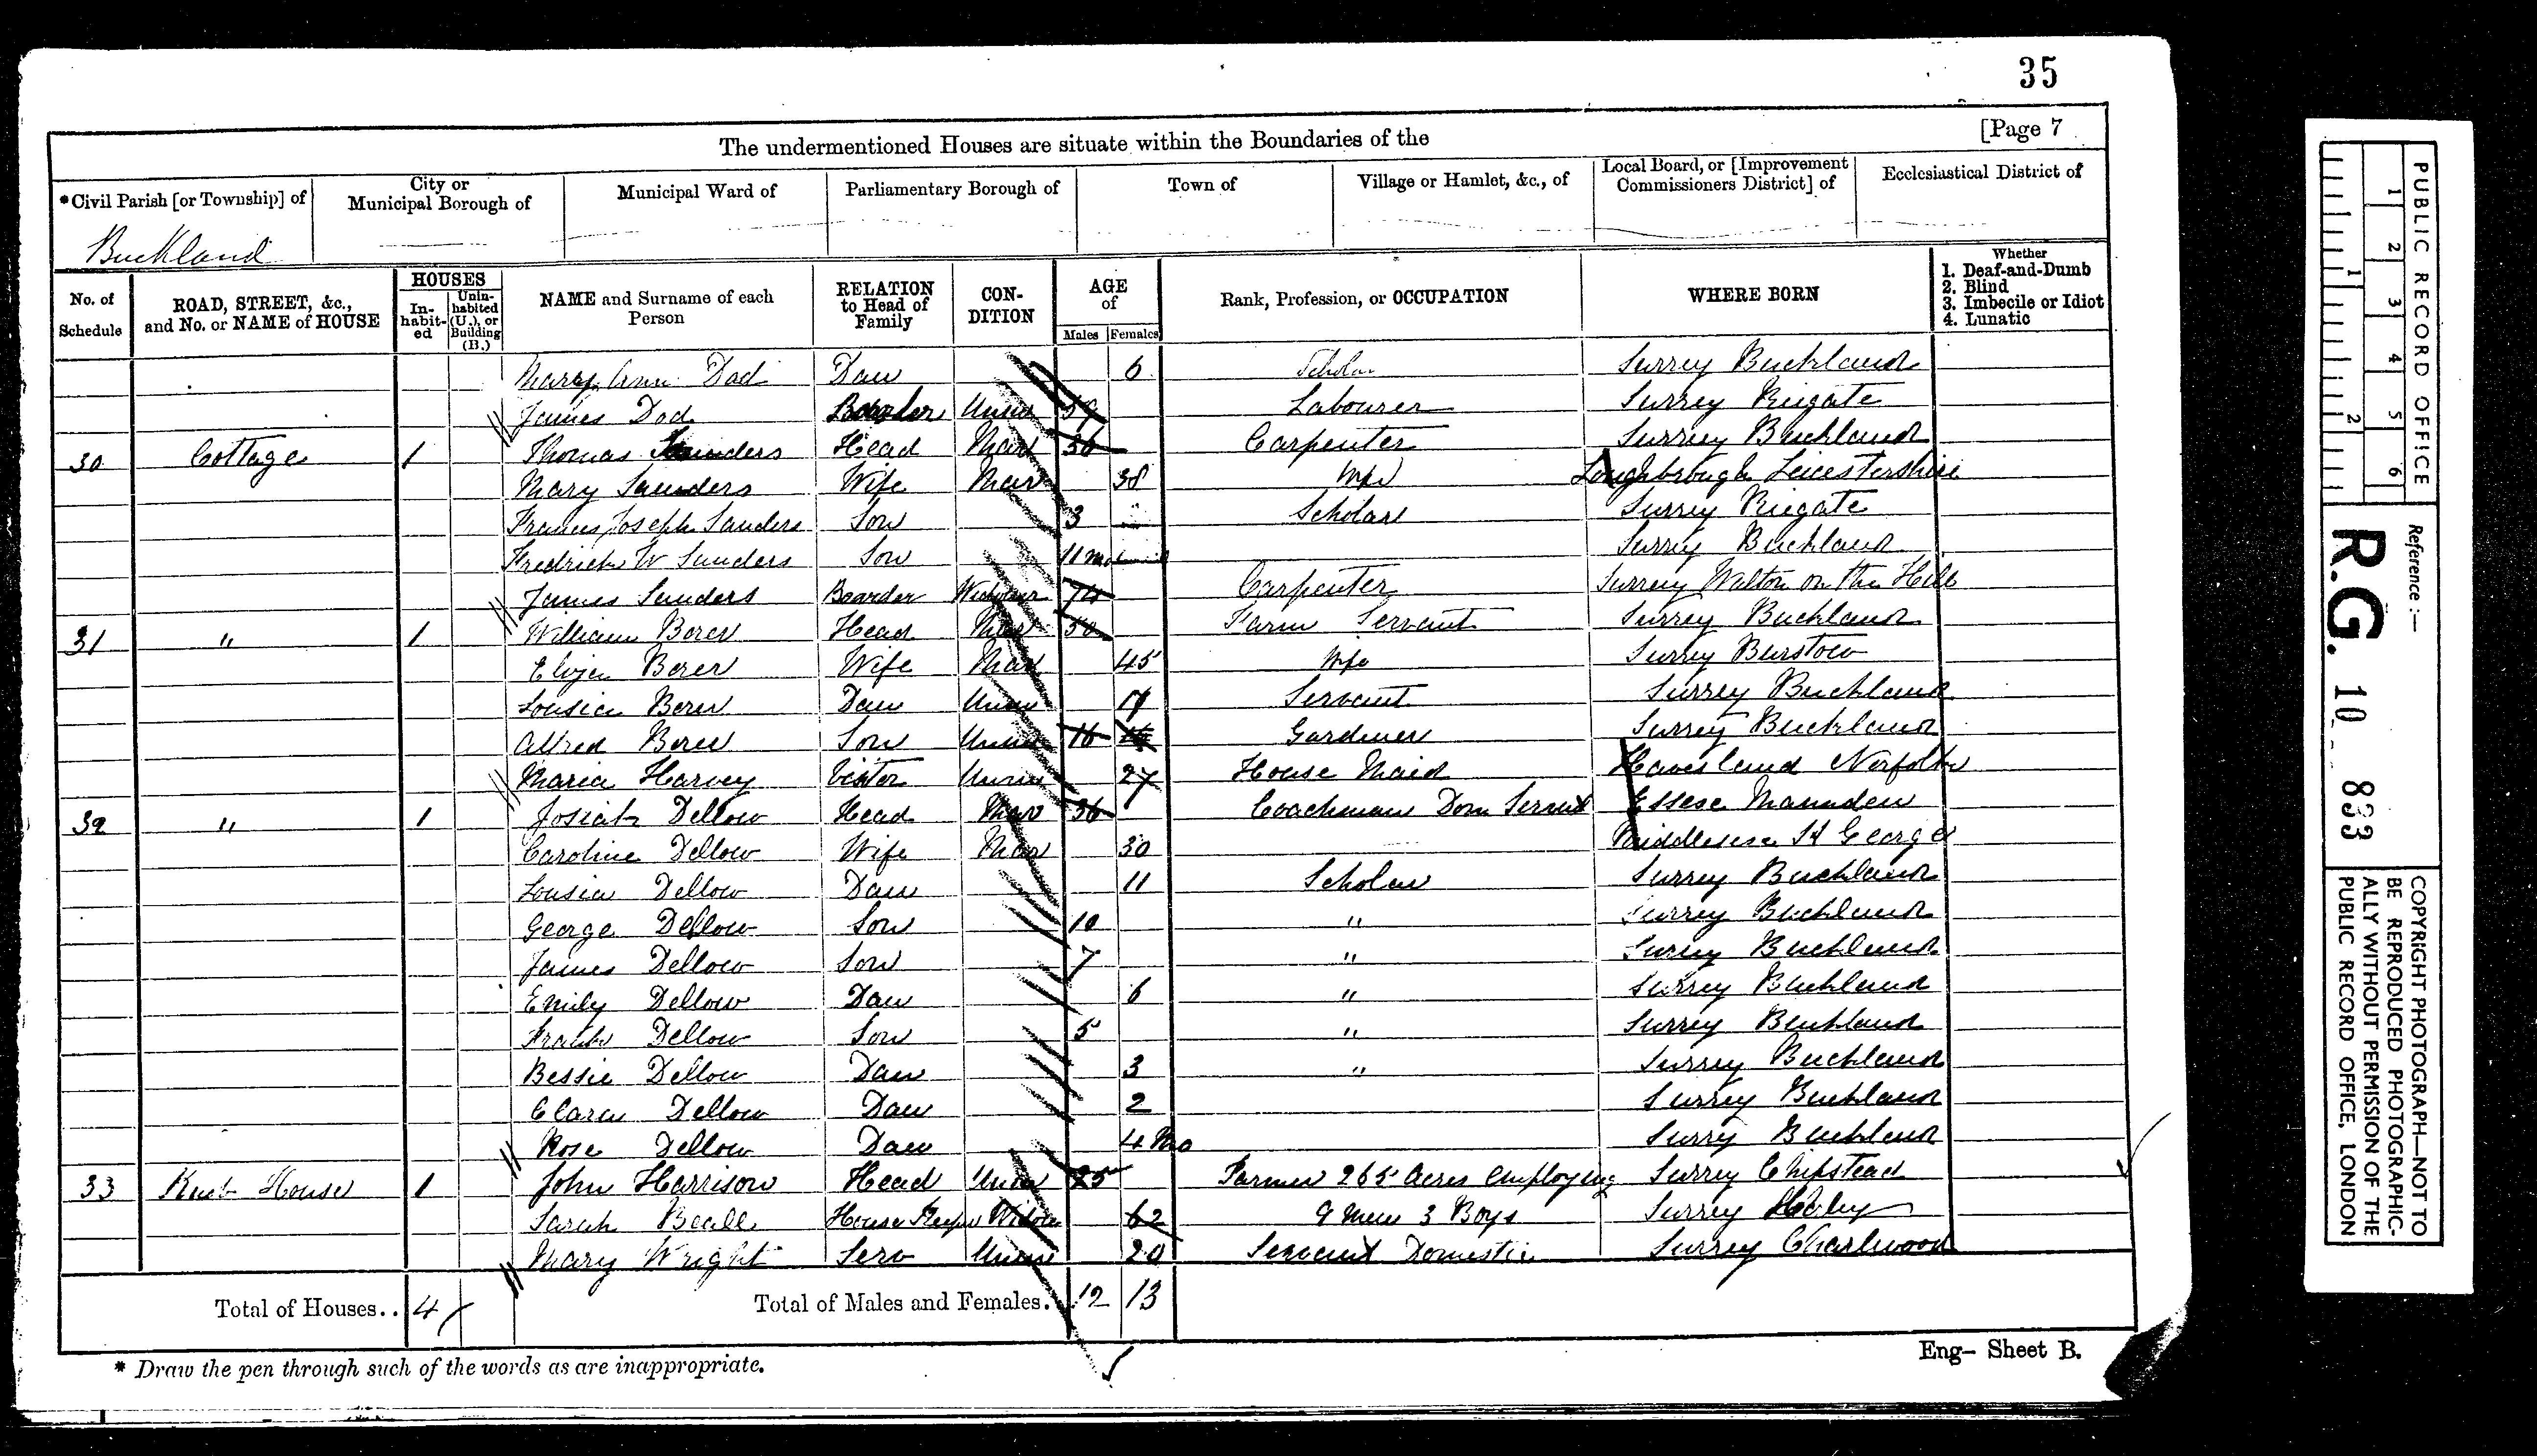 35
The undermentioned Houses are situate within the Boundaries of the [Page 7
*Civil Parish [or Township] of
City or Municipal Borough of
Municipal Ward of
Parliamentary Borough of
Town of
Village or Hamlet, &c., of
Local Board, or [Improvement Commissioners District] of
Ecclesiastical District of
Buckland
No. of Schedule
ROAD, STREET, &c., and No. or NAME of HOUSE
HOUSES
In-habit-ed
Unin-habited (U.), or Building (B.)
NAME and Surname of each Person
RELATION to Head of Family
CON-DITION
AGE of
Males Females
Rank, Profession, or OCCUPATION
WHERE BORN
Whether
1. Deaf-and-Dumb
2. Blind
3. Imbecile or Idiot
4. Lunatic
Mary Ann Dod Daw 6 Scholar Surrey Buckland
James Dod Boarder Unm 59 Labourer Surrey Riegate
30 Cottage 1 Thomas Sanders Head Mar 36 Carpenter Surrey Buckland
Mary Sanders Wife Mar 38 Wife Loughbrough Leicestershire
Francis Joseph Sanders Son 3 Scholar Surrey Riegate
Fredrick W Sanders Son 11 mo Surrey Buckland
James Sanders Boarder Widower 74 Carpenter Surrey Walton on the Hill
31 " 1 William Borer Head Mar 50 Farm Servant Surrey Buckland
Eliza Borer Wife Mar 45 Wife Surrey Burstow
Lousia Borer Daw Unm Servant Surrey Buckland
Alfred Borer Son Unm 16 Gardiner Surrey Buckland
Maria Harvey Visitor Unm 27 House Maid Norfolk
32 " 1 Josiah Dellow Head Mar 36 Coachman Dom Servant Essex Manuden
Caroline Dellow Wife Mar 30 Middlesex St George
Lousia Dellow Daw 11 Scholar Surrey Buckland
George Dellow Son 10 " Surrey Buckland
James Dellow Son 7 " Surrey Buckland
Emily Dellow Daw 6 " Surrey Buckland
Frank Dellow Son 5 " Surrey Buckland
Bessie Dellow Daw 3 " Surrey Buckland
Clara Dellow Daw 2 Surrey Buckland
Rose Dellow Daw 4 Mo Surry Buckland
33 House 1 John Harrison Head Unm Farmer 265 Acres employing Surrey Chipstead
Sarah Beall House Keeper Widow 62 9 Men 3 Boys Surrey
Mary Wright Serv Unm 20 Servant Domestic Surrey Charlwood
Total of Houses.. 4 Total of Males and Females. 12 13
* Draw the pen through such of the words as are inappropriate.
Eng- Sheet B.
PUBLIC RECORD OFFICE
1 2 3 4 5 6
1 2
Reference :—
R.G. 10 833
COPYRIGHT PHOTOGRAPH—NOT TO BE REPRODUCED PHOTOGRAPHICALLY WITHOUT PERMISSION OF THE PUBLIC RECORD OFFICE, LONDON